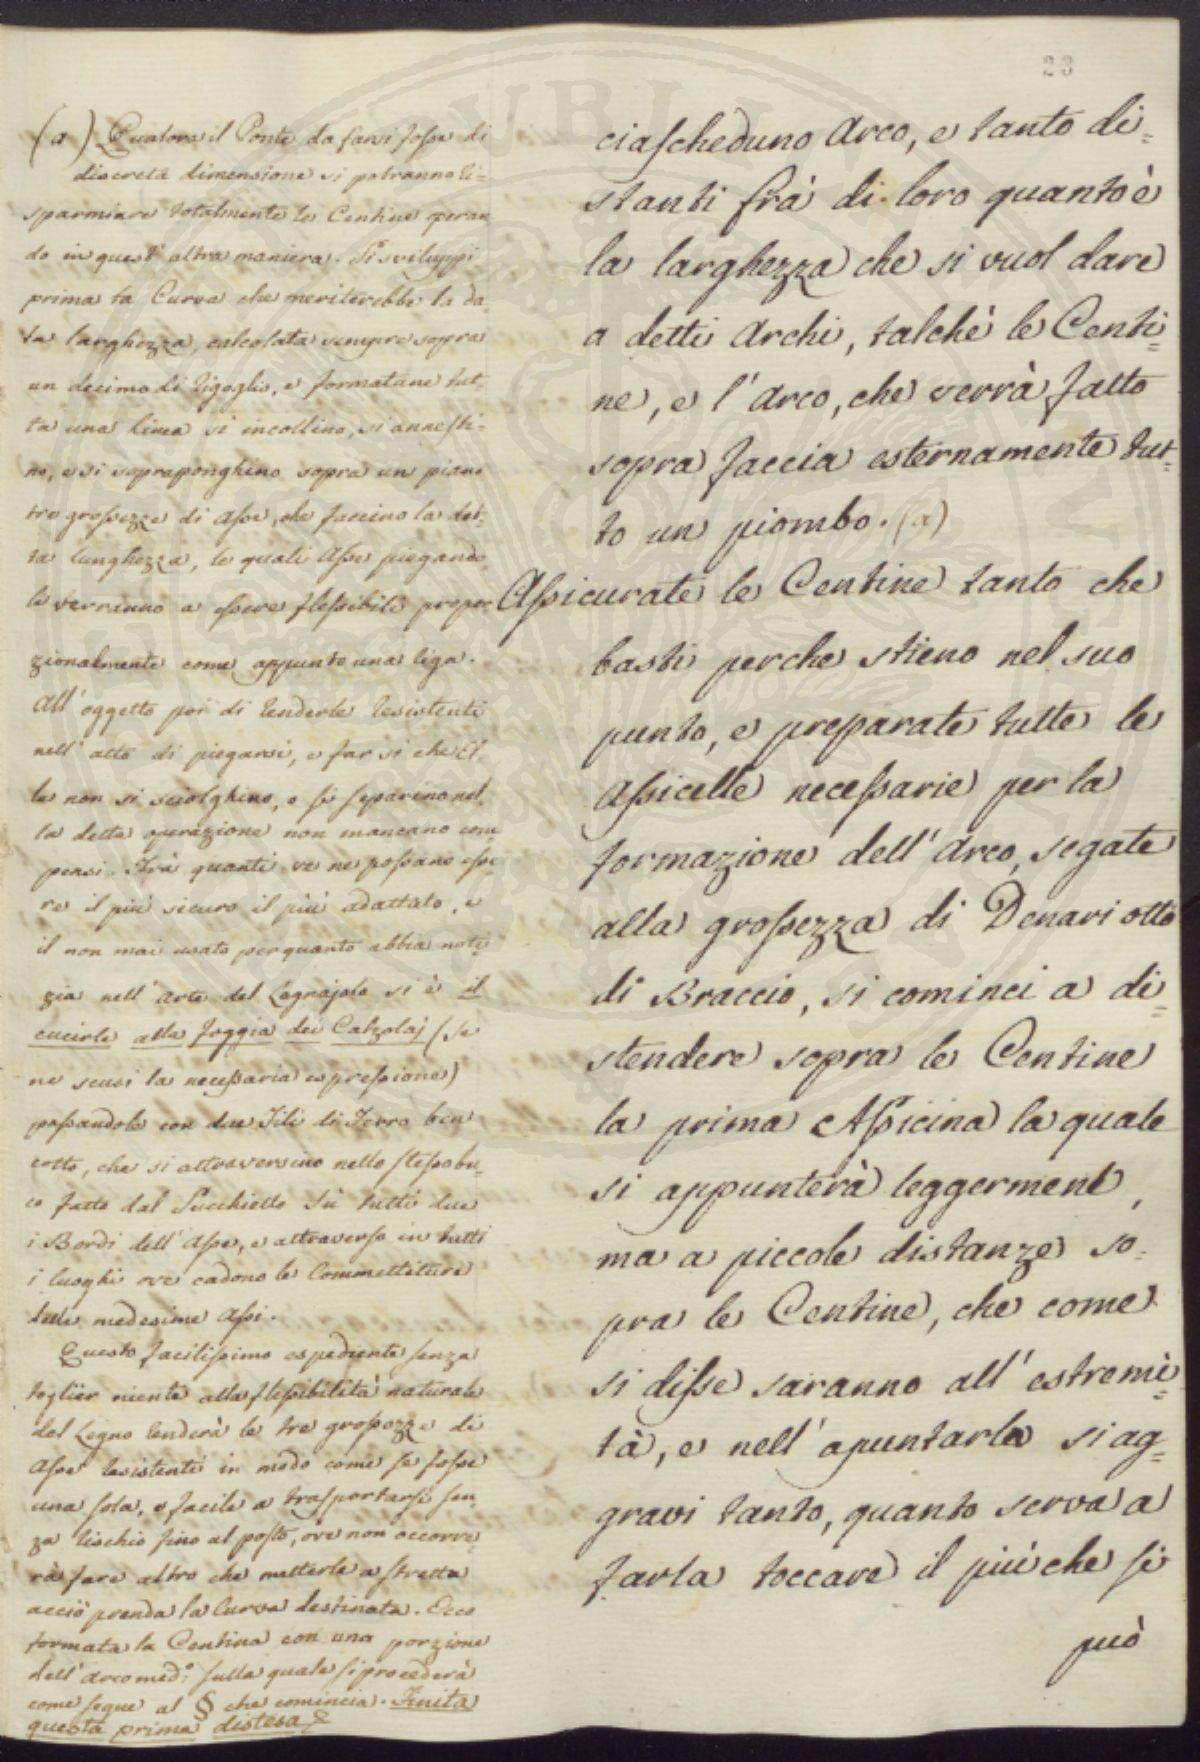 23
ciascheduno Arco, e tanto di=
stanti frà di loro quanto è
la larghezza che si vuol dare
a detti Archi, talchè le Centi=
ne, e l'Arco, che verrà fatto
sopra faccia esternamente tut=
to un piombo. (a)
Assicurate le Centine tanto che
basti perche stieno nel suo
punto, e preparate tutte le
Assicelle necessarie per la
formazione dell'Arco, segate
alla grossezza di Denari otto
di Braccio, si cominci a di=
stendere sopra le Centine
la prima Assicina la quale
si appunterà leggerment,
ma a piccole distanze so=
pra le Centine, che come
si disse saranno all'estremi=
tà, e nell'apuntarla si ag=
gravi tanto, quanto serva a
farla toccare il più che si
può
(a) Qualora il Ponte da farsi fosse di
discreta dimensione si potranno ri=
sparmiare totalmente le Centine operan
do in quest'altra maniera. Si sviluppi
prima la Curva che meriterebbe la da
ta larghezza, calcolata sempre sopra
un decimo di rigoglio, e formatane tut=
ta una linea si incollino, si annesti=
no, e si soprapponghino sopra un piano
tre grossezze di Asse, che faccino la det=
ta lunghezza, le quali Asse piegando
le verranno a essere flessibili propor
zionalmente come appunto una liga.
All'oggetto poi di renderle resistenti
nell'atto di piegarsi, e far sì che El=
le non si sciolghino, o si separino nel=
la detta operazione non mancano com
pensi. Frà quanti ve ne possano esse
re il più sicuro il più adattato, e
il non mai usato per quanto abbia noti
zia nell'Arte del Legnajolo si è il
cucirle alla foggia dei Calzolaj (se
ne scusi la necessaria espressione)
passandole con due Fili di Ferro ben
cotto, che si attraversino nello stesso bu=
co fatto dal Succhiello sù tutti due
i Bordi dell'Asse, e attraverso in tutti
i luoghi ove cadono le Commettiture
delle medesime Assi.
Questo facilissimo espediente senza
toglier niente alla flessibilità naturale
del Legno renderà le tre grossezze di
Asse resistenti in modo come se fosse
una sola, e facile a trasportarsi sen=
za rischio fino al posto, ove non occorre
rà fare altro che metterle a stretta
acciò prenda la Curva destinata. Ecco
formata la Centina con una porzione
dell'arco med:º sulla quale si procederà
come segue al § che comincia. Finita
questa prima distesa &